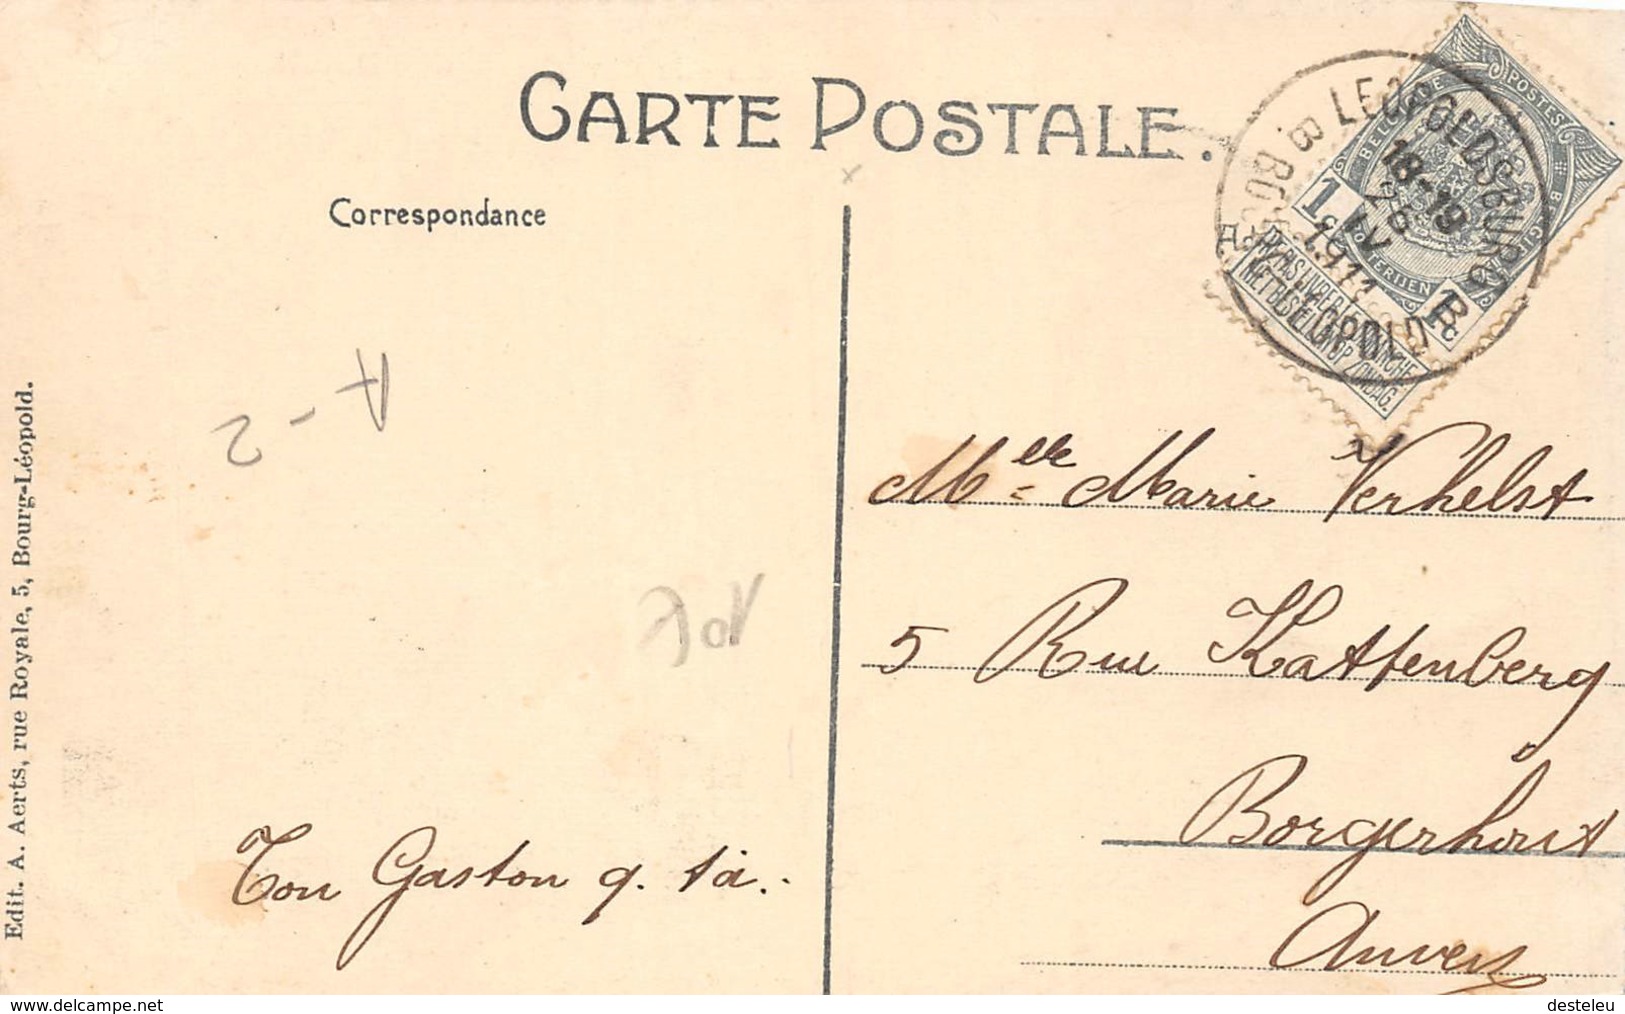 CARTE POSTALE.
Correspondance
LEOPOLDSBURG
B
18-19
26 IV
1911
B
POSTES
1c
1c
NE PAS LIVRER LE DIMANCHE
NIET BESTELLEN OP ZONDAG.
A-2
10€
Melle Marie Verhelst
5 Rue Kattenberg
Borgerhout
Anvers
Ton Gaston q. t'a..
Edit. A. Aerts, rue Royale, 5, Bourg-Léopold.
www.delcampe.net
desteleu